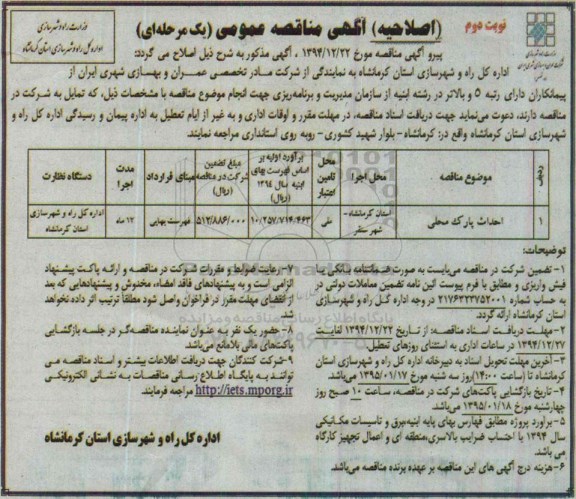 نوبت دوم
(اصلاحیه) آگهی مناقصه عمومی (یک مرحله‌ای)
وزارت راه و شهرسازی
اداره کل راه و شهرسازی استان کرمانشاه
پیرو آگهی مناقصه مورخ ۱۳۹۴/۱۲/۲۲ ، آگهی مذکور به شرح ذیل اصلاح می گردد:
اداره کل راه و شهرسازی استان کرمانشاه به نمایندگی از شرکت مادر تخصصی عمران و بهسازی شهری ایران از
پیمانکاران دارای رتبه ۵ و بالاتر در رشته ابنیه از سازمان مدیریت و برنامه‌ریزی جهت انجام موضوع مناقصه با مشخصات ذیل، که تمایل به شرکت در
مناقصه دارند، دعوت می‌نماید جهت دریافت اسناد مناقصه، در مهلت مقرر و اوقات اداری و به غیر از ایام تعطیل به اداره پیمان و رسیدگی اداره کل راه و
شهرسازی استان کرمانشاه واقع در: کرمانشاه - بلوار شهید کشوری - روبه روی استانداری مراجعه نمایند.
ردیف | موضوع مناقصه | محل اجرا | محل تامین اعتبار | برآورد اولیه بر اساس فهرست بهای ابنیه سال ۱۳۹۴ (ریال) | مبلغ تضمین شرکت در مناقصه (ریال) | مبنای قرارداد | مدت اجرا | دستگاه نظارت
۱ | احداث پارک محلی | استان کرمانشاه- شهر سنقر | ملی | ۱۰/۲۵۷/۷۱۴/۴۶۳ | ۵۱۲/۸۸۶/۰۰۰ | فهرست بهایی | ۱۲ ماه | اداره کل راه و شهرسازی استان کرمانشاه
توضیحات:
۱- تضمین شرکت در مناقصه می‌بایست به صورت ضمانتنامه بانکی یا
فیش واریزی و مطابق با فرم پیوست آئین نامه تضمین معاملات دولتی در
به حساب شماره ۲۱۷۶۲۳۷۵۲۰۰۱ در وجه اداره کل راه و شهرسازی
استان کرمانشاه ارائه گردد.
۲- مهلت دریافت اسناد مناقصه: از تاریخ ۱۳۹۴/۱۲/۲۲ لغایت
۱۳۹۴/۱۲/۲۷ در ساعات اداری به استثنای روزهای تعطیل.
۳- آخرین مهلت تحویل اسناد به دبیرخانه اداره کل راه و شهرسازی استان
کرمانشاه تا (ساعت ۱۴:۰۰) روز سه شنبه مورخ ۱۳۹۵/۰۱/۱۷ می‌باشد.
۴- تاریخ بازگشایی پاکت‌های شرکت در مناقصه، ساعت ۱۰ صبح روز
چهارشنبه مورخ ۱۳۹۵/۰۱/۱۸ می‌باشد.
۵- برآورد پروژه مطابق فهارس بهای پایه ابنیه،برق و تاسیسات مکانیکی
سال ۱۳۹۴ با احتساب ضرایب بالاسری،منطقه ای و اعمال تجهیز کارگاه
می باشد.
۶- هزینه درج آگهی های این مناقصه بر عهده برنده مناقصه می‌باشد.
۷- رعایت ضوابط و مقررات شرکت در مناقصه و ارائه پاکت پیشنهاد
الزامی است و به پیشنهادهای فاقد امضاء، مخدوش و پیشنهادهایی که بعد
از انقضای مهلت مقرر در فراخوان واصل شود مطلقاً ترتیب اثر داده نخواهد
شد.
۸- حضور یک نفر به عنوان نماینده مناقصه‌گر در جلسه بازگشایی
پاکت‌های مالی بلامانع می‌باشد.
۹- شرکت کنندگان جهت دریافت اطلاعات بیشتر و اسناد مناقصه می
توانند به پایگاه اطلاع رسانی مناقصات به نشانی الکترونیکی
http://iets.mporg.ir مراجعه فرمایند.
اداره کل راه و شهرسازی استان کرمانشاه